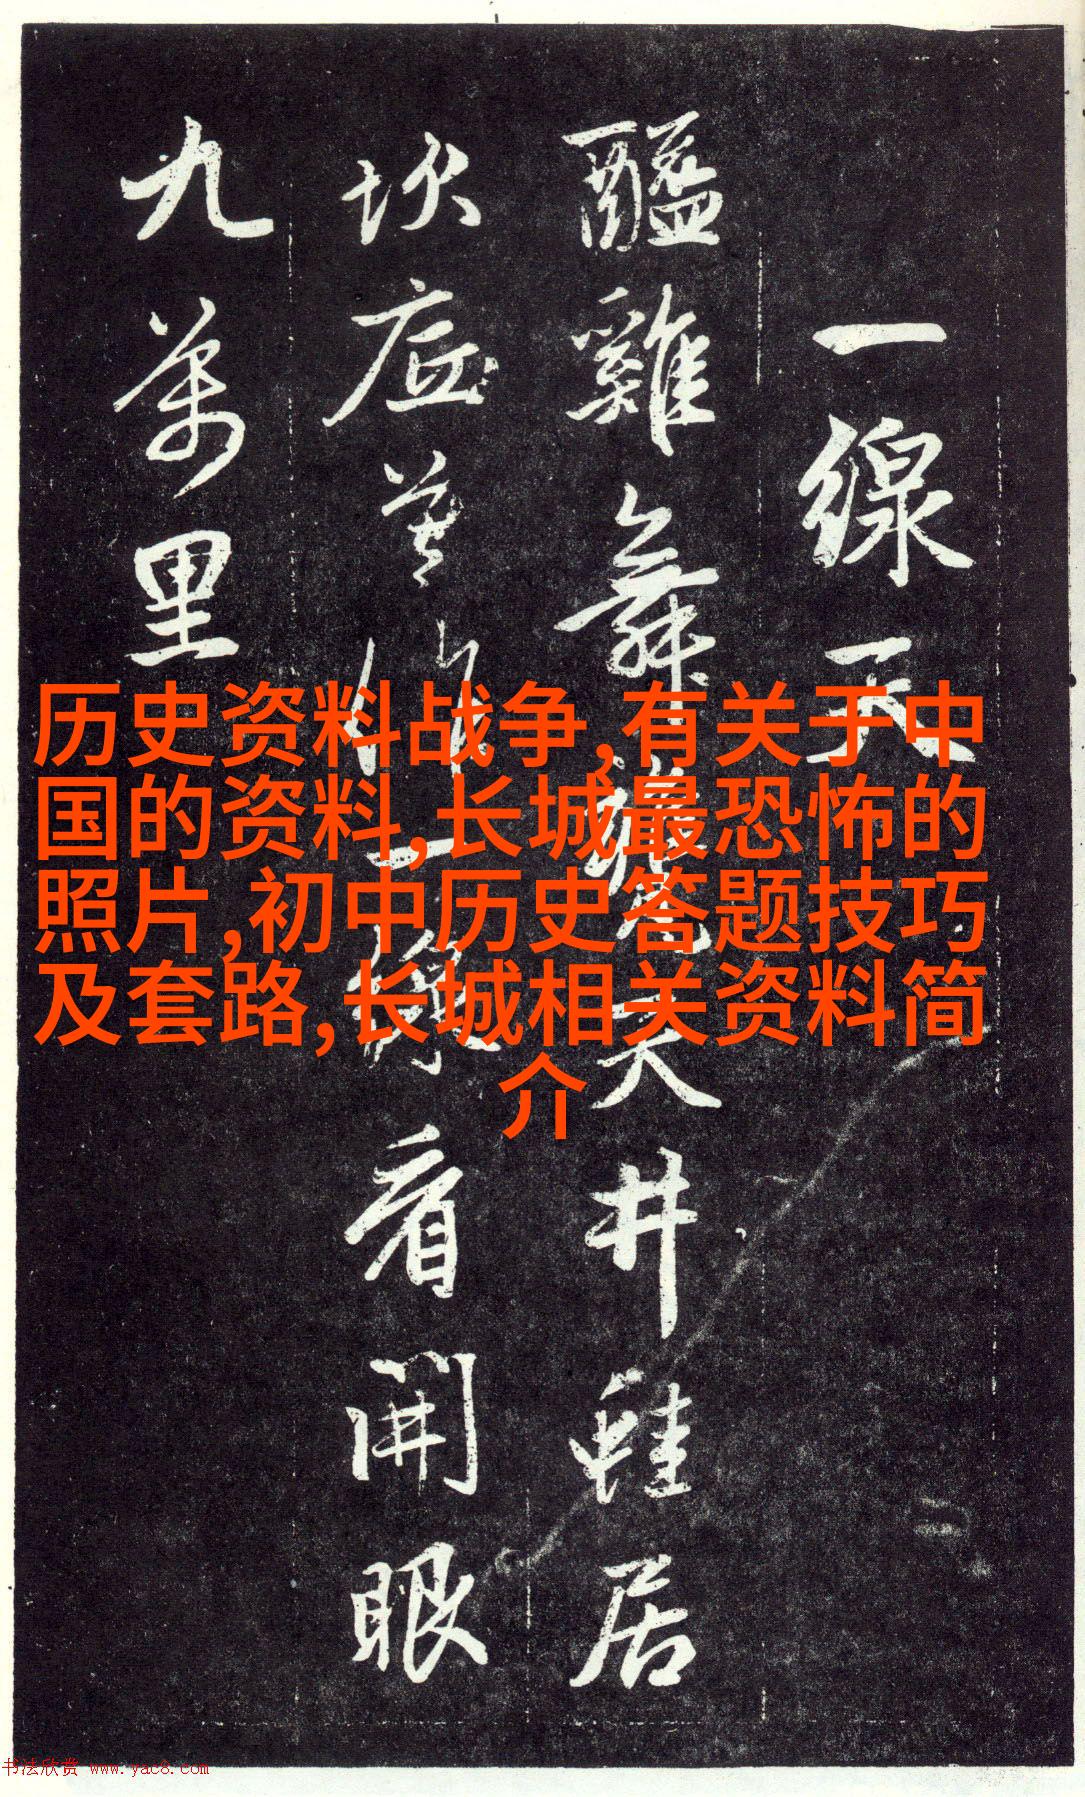 一線天
醯雞舞甕天井蛙居
坎底莫作一線看開眼
九萬里
历史资料战争,有关于中
国的资料,长城最恐怖的
照片,初中历史答题技巧
及套路,长城相关资料简
介
书法欣赏 www.yac8.com